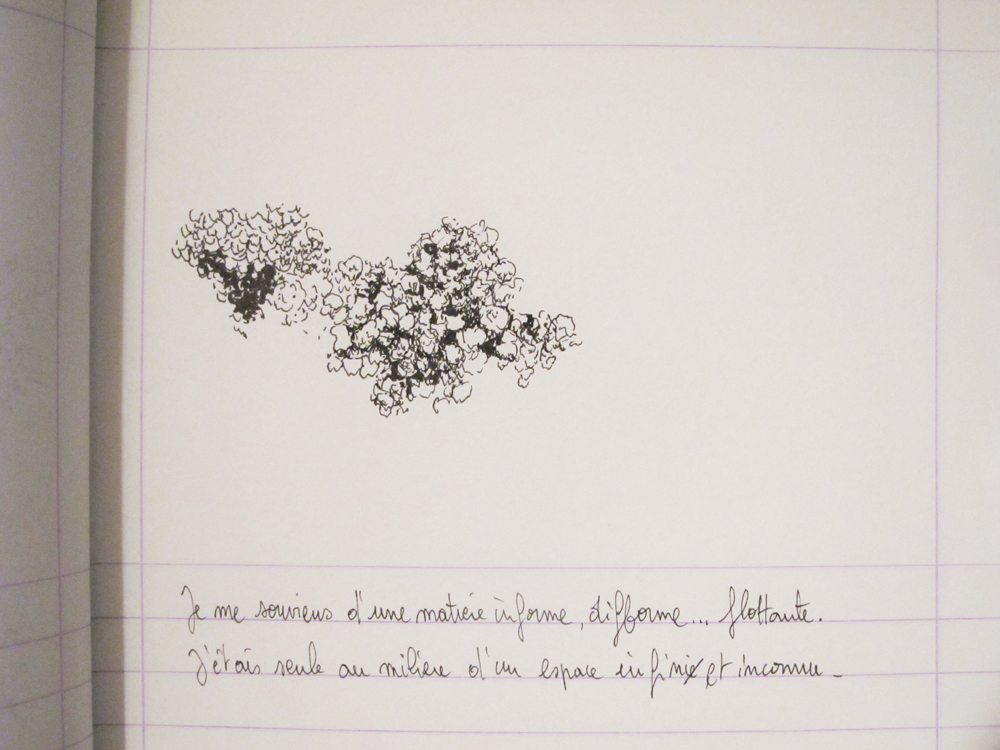 Je me souviens d'une matière informe, difforme... flottante.
J'étais seule au milieu d'un espace infini et inconnu_